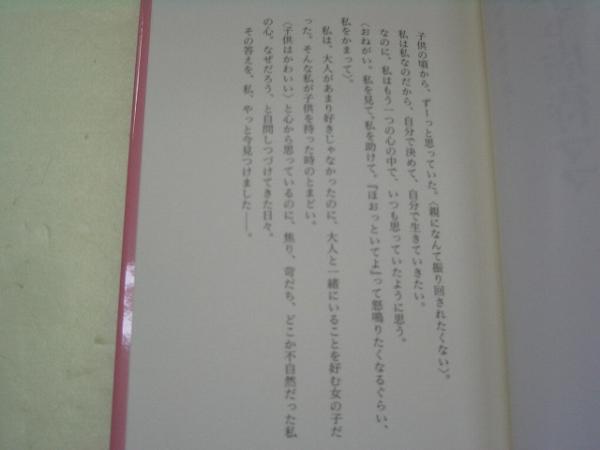 子供の頃から、ずーっと思っていた。〈親になんて振り回されたくない〉。
私は私なのだから、自分で決めて、自分で生きていきたい。
なのに、私はもう一つの心の中で、いつも思っていたように思う。
〈おねがい。私を見て。私を助けて。『ほおっといてよ』って怒鳴りたくなるぐらい、
私をかまって〉。
私は、大人があまり好きじゃなかったのに、大人と一緒にいることを好む女の子だ
った。そんな私が子供を持った時のとまどい。
〈子供はかわいい〉と心から思っているのに、焦り、苛だち、どこか不自然だった私
の心。なぜだろう、と自問しつづけてきた日々。
その答えを、私、やっと今見つけました――。